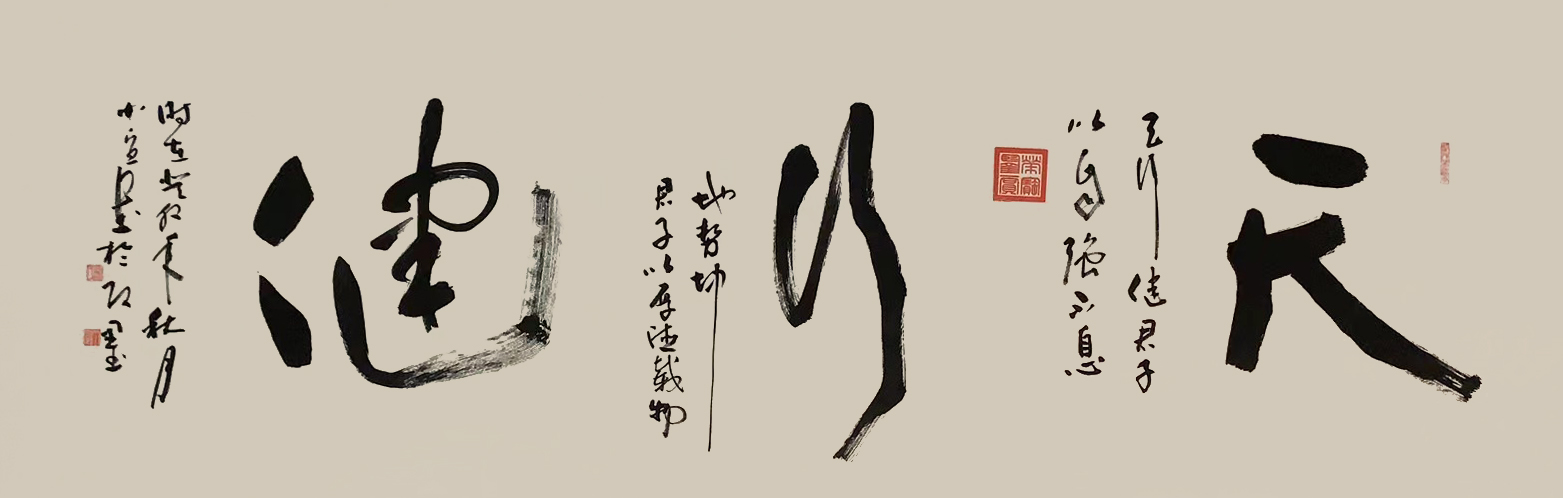 天
天行健君子
以自强不息
行
地势坤
君子以厚德载物
健
秋月
於